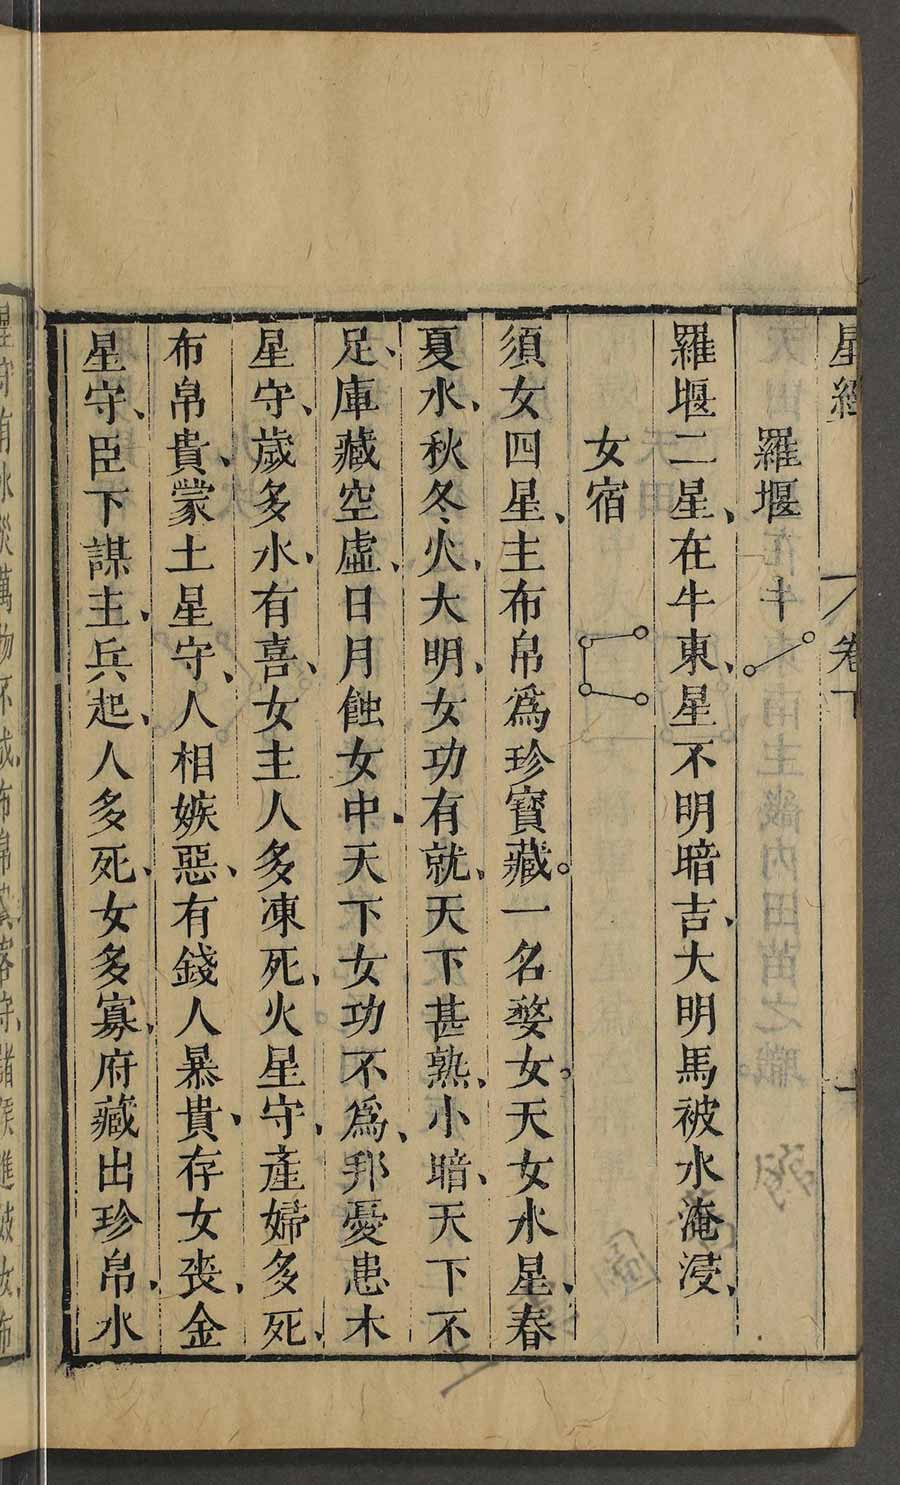 星經 卷下
羅堰
羅堰二星、在牛東、星不明暗吉、大明馬被水淹浸、
女宿
須女四星、主布帛爲珍寶藏。一名婺女。天女水星、春
夏水、秋冬、火大明、女功有就、天下甚熟、小暗、天下不
足、庫藏空虛、日月蝕女中、天下女功不爲、邦憂患木
星守、歲多水、有喜、女主人多凍死、火星守、產婦多死、
布帛貴、蒙土星守、人相嫉惡、有錢人暴貴、存女喪、金
星守、臣下謀主、兵起、人多死、女多寡、府藏出珍帛、水